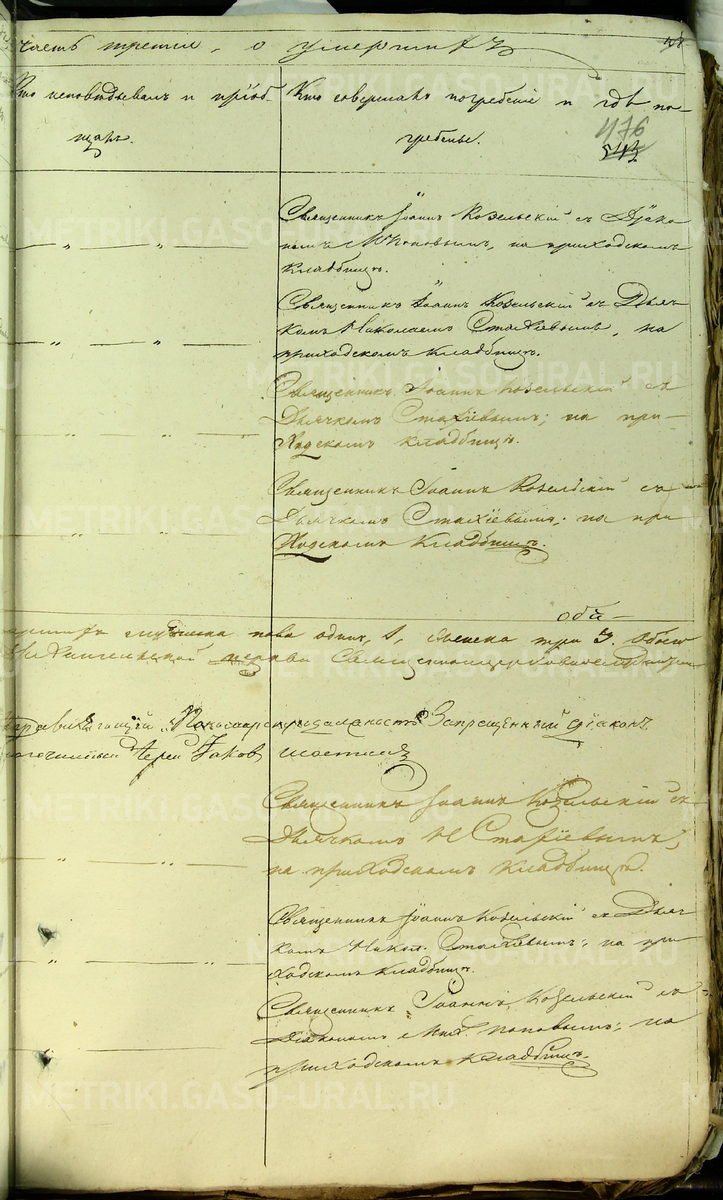 часть третія, о умершихъ
Кто исповѣдывалъ и пріоб-
щалъ.
Кто совершалъ погребеніе и гдѣ по-
гребены.
476
Священникъ Іоаннъ Козельскій съ Діако-
номъ М. Поповымъ, на приходскомъ
кладбищѣ.
Священникъ Іоаннъ Козельскій съ Дьяч-
комъ Николаемъ Стахіевымъ, на
приходскомъ кладбищѣ.
Священникъ Іоаннъ Козельскій съ
Дьячкомъ Стахіевымъ; на при-
ходскомъ кладбищѣ.
Священникъ Іоаннъ Козельскій съ
Дьячкомъ Стахіевымъ; на при
ходскомъ кладбищѣ.
обо-
мужеска пола одинъ, 1, женска три 3. Обоего
церкви
Запрещенный діаконъ
Іерей Іаковъ
Священникъ Іоаннъ Козельскій съ
Дьячкомъ Н Стахіевымъ,
на приходскомъ кладбищѣ.
Священникъ Іоаннъ Козельскій съ Дьяч-
комъ Никол. Стахіевымъ; на при-
ходскомъ кладбищѣ.
Священникъ Іоаннъ Козельскій съ
Діакономъ Мих. Поповымъ; на
приходскомъ кладбищѣ.
METRIKI.GASO-URAL.RU